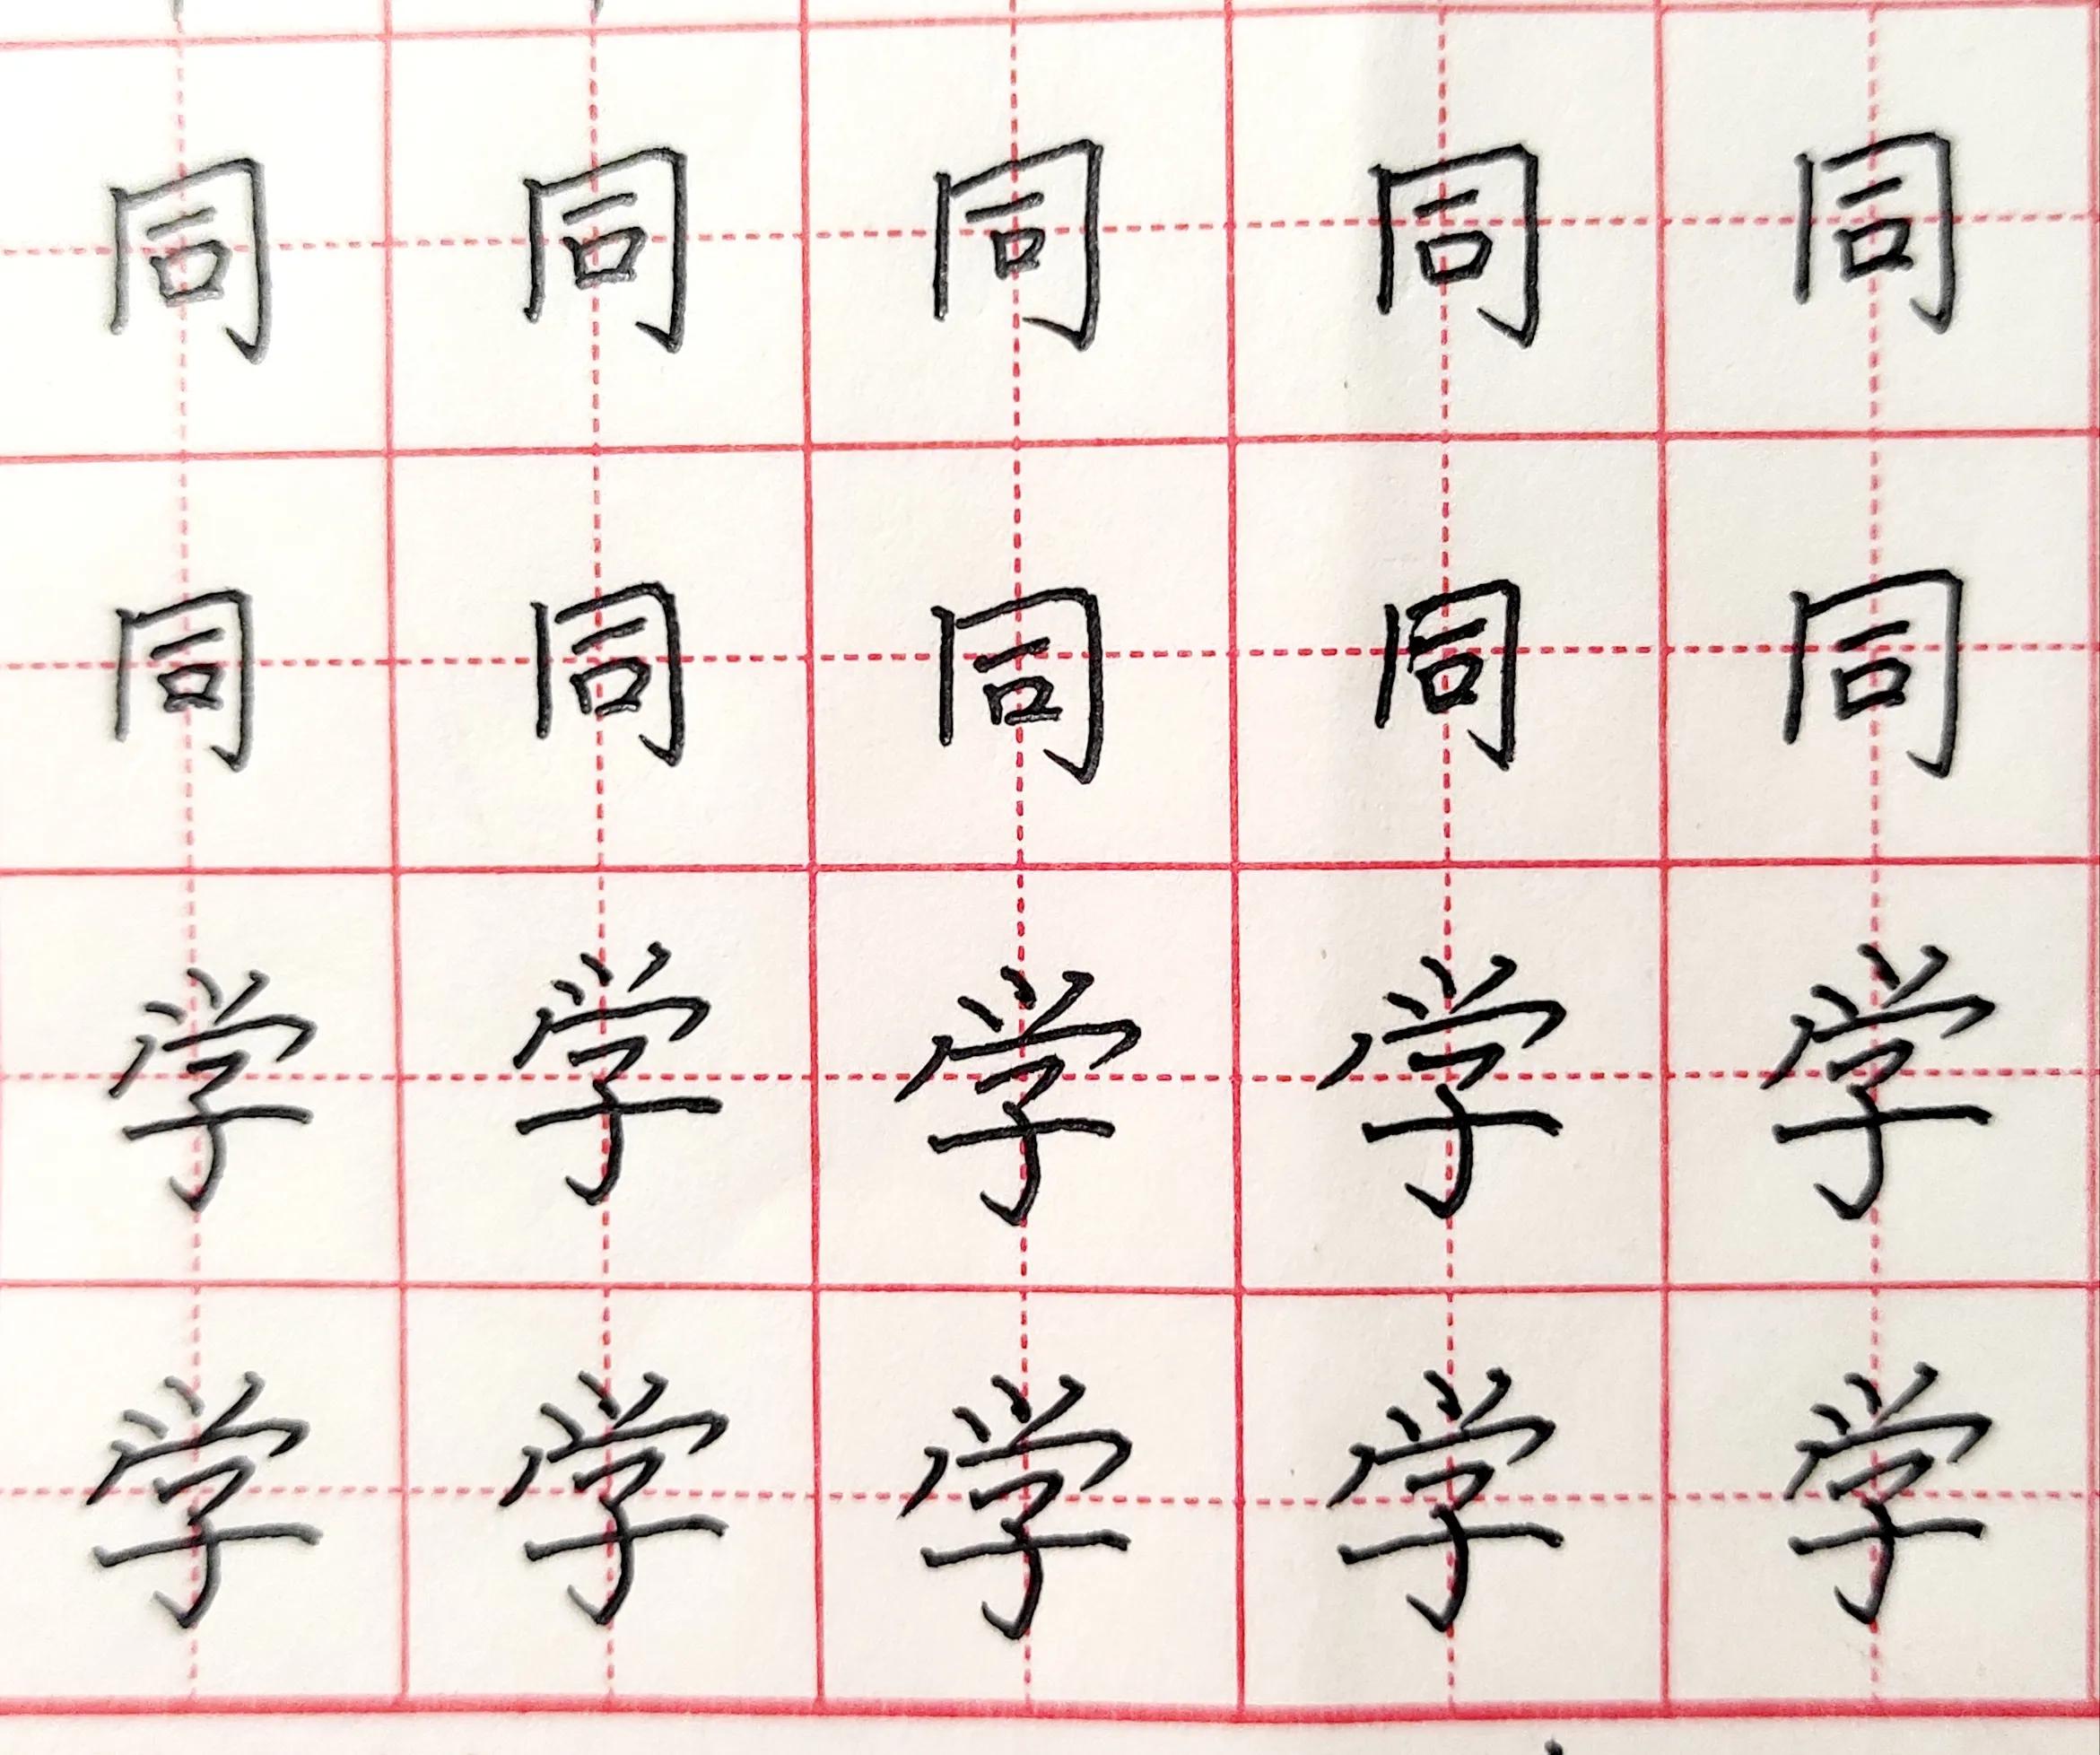 同同同同同
同同同同同
学学学学学
学学学学学